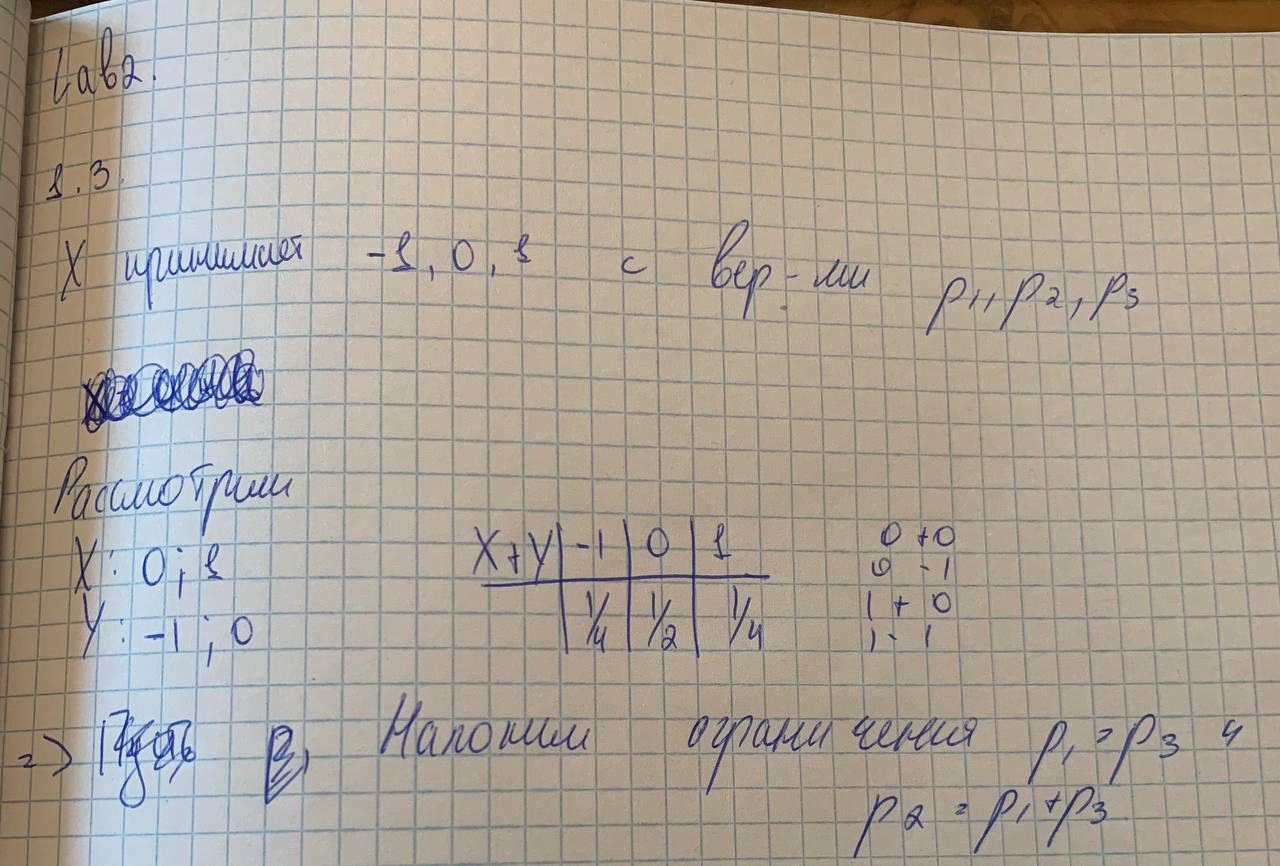 Lab2.
1.3.
X принимает -1, 0, 1 с вер-ми p1, p2, p3
Рассмотрим
X: 0; 1
Y: -1; 0
X+Y | -1 | 0 | 1
1/4 | 1/2 | 1/4
0 + 0
0 - 1
1 + 0
1 - 1
=> Наложим ограничения p1 = p3 и
p2 = p1 + p3